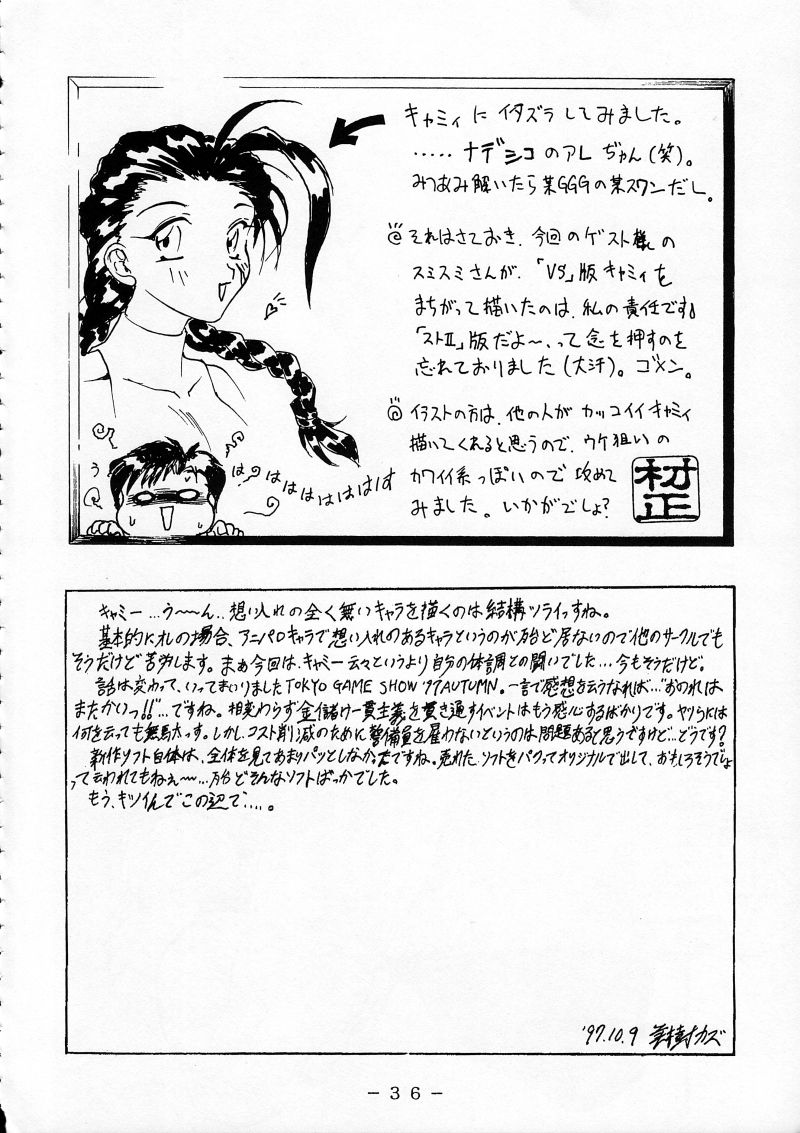 キャミィに イタズラ してみました。
‥‥‥ナデシコのアレぢゃん(笑)。
みつあみ解いたら某GGGの某スワンだし。
それはさておき、今回のゲスト様の
スミスミさんが、「VS」版キャミィを
まちがって描いたのは、私の責任です。
「ストⅡ」版だよ～、って念を押すのを
忘れておりました(大汗)。ゴメン。
イラストの方は、他の人が カッコイイキャミィ
描いてくれると思うので、ウケ狙いの
カワイイ系っぽいので 攻めて
みました。いかがでしょ?
村正
う
はっはははははは
キャミー…う～～ん…想い入れの全く無いキャラを描くのは結構ツライっすね。
基本的にオレの場合、アニパロキャラで想い入れのあるキャラというのが殆ど居ないので他のサークルでも
そうだけど苦労します。まぁ今回は、キャミー云々というより自分の体調との闘いでした…今もそうだけど。
話は変わって、いってまいりましたTOKYO GAME SHOW '97 AUTUMN。一言で感想を云うなれば…"おのれは
またかいっ!!"…ですね。相変わらず金儲け一貫主義を貫き通すイベントはもう感心するばかりです。ヤツらには
何を云っても無駄っす。しかし、コスト削減のために警備員を雇わないというのは問題あると思うですけど…どうです?
新作ソフト自体は、全体を見てあまりパッとしなかったですね。売れたソフトをパクってオリジナルで出して、おもしろそうでしょ
って云われてもねぇ～～…殆どそんなソフトばっかでした。
もう、キツイんでこの辺で…。
'97.10.9 カズ
- 36 -